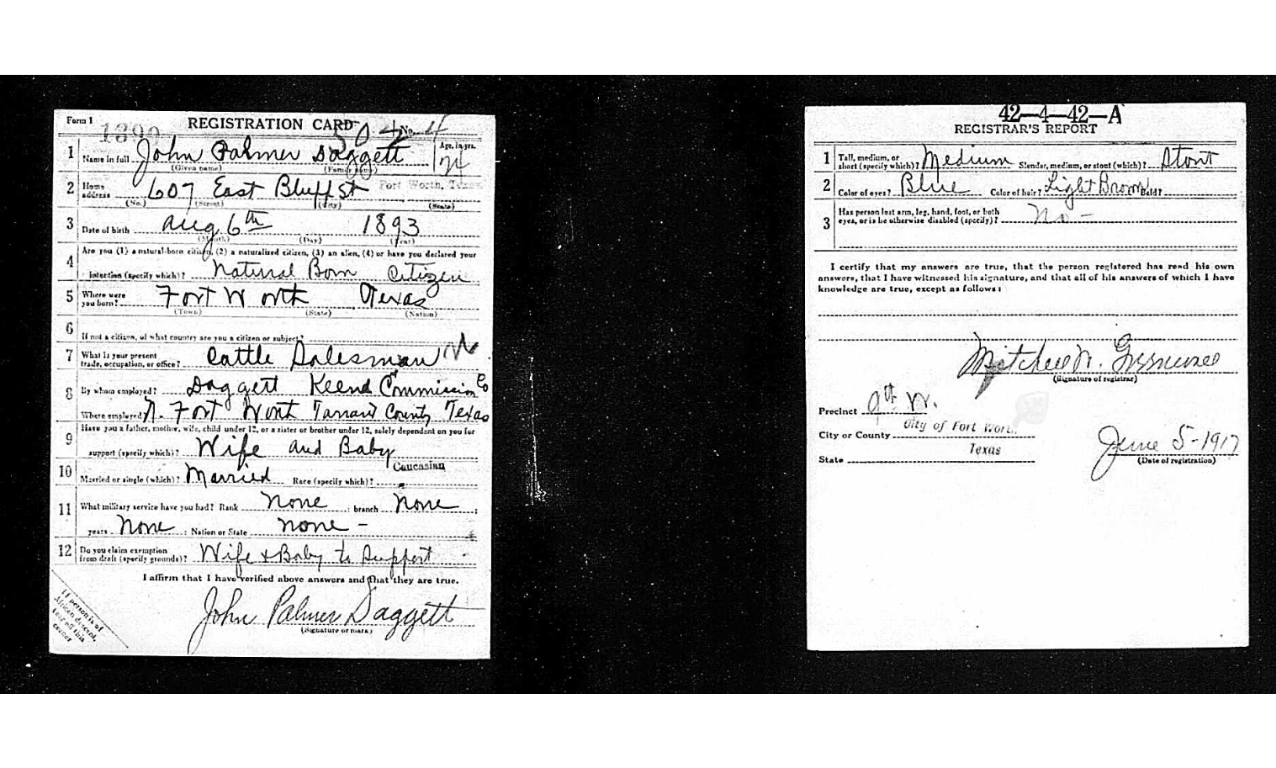 Form 1
1390
REGISTRATION CARD
No. 4
1 Name in full John Palmer Daggett Age, in yrs. 24
(Given name) (Family name)
2 Home address 607 East Bluff St Fort Worth, Texas
(No.) (Street) (City) (State)
3 Date of birth Aug 6th 1893
(Month) (Day) (Year)
4 Are you (1) a natural-born citizen, (2) a naturalized citizen, (3) an alien, (4) or have you declared your
intention (specify which)? Natural Born Citizen
5 Where were you born? Fort Worth Texas
(Town) (State) (Nation)
6 If not a citizen, of what country are you a citizen or subject?
7 What is your present trade, occupation, or office? Cattle Salesman
8 By whom employed? Daggett Keend Commission Co
Where employed? N. Fort Wort Tarrant County Texas
9 Have you a father, mother, wife, child under 12, or a sister or brother under 12, solely dependent on you for
support (specify which)? Wife and Baby
10 Married or single (which)? Married Race (specify which)? Caucasian
11 What military service have you had? Rank None ; branch None ;
years None ; Nation or State None -
12 Do you claim exemption from draft (specify grounds)? Wife & Baby to Support
I affirm that I have verified above answers and that they are true.
John Palmer Daggett
(Signature or mark)
If person is of
African descent,
tear off this
corner
42-4-42-A
REGISTRAR'S REPORT
1 Tall, medium, or short (specify which)? Medium Slender, medium, or stout (which)? Stout
2 Color of eyes? Blue Color of hair? Light Brown Bald?
3 Has person lost arm, leg, hand, foot, or both eyes, or is he otherwise disabled (specify)? No -
I certify that my answers are true, that the person registered has read his own
answers, that I have witnessed his signature, and that all of his answers of which I have
knowledge are true, except as follows:
Mitchell N.
(Signature of registrar)
Precinct 9th W.
City or County City of Fort Worth
State Texas
June 5-1917
(Date of registration)